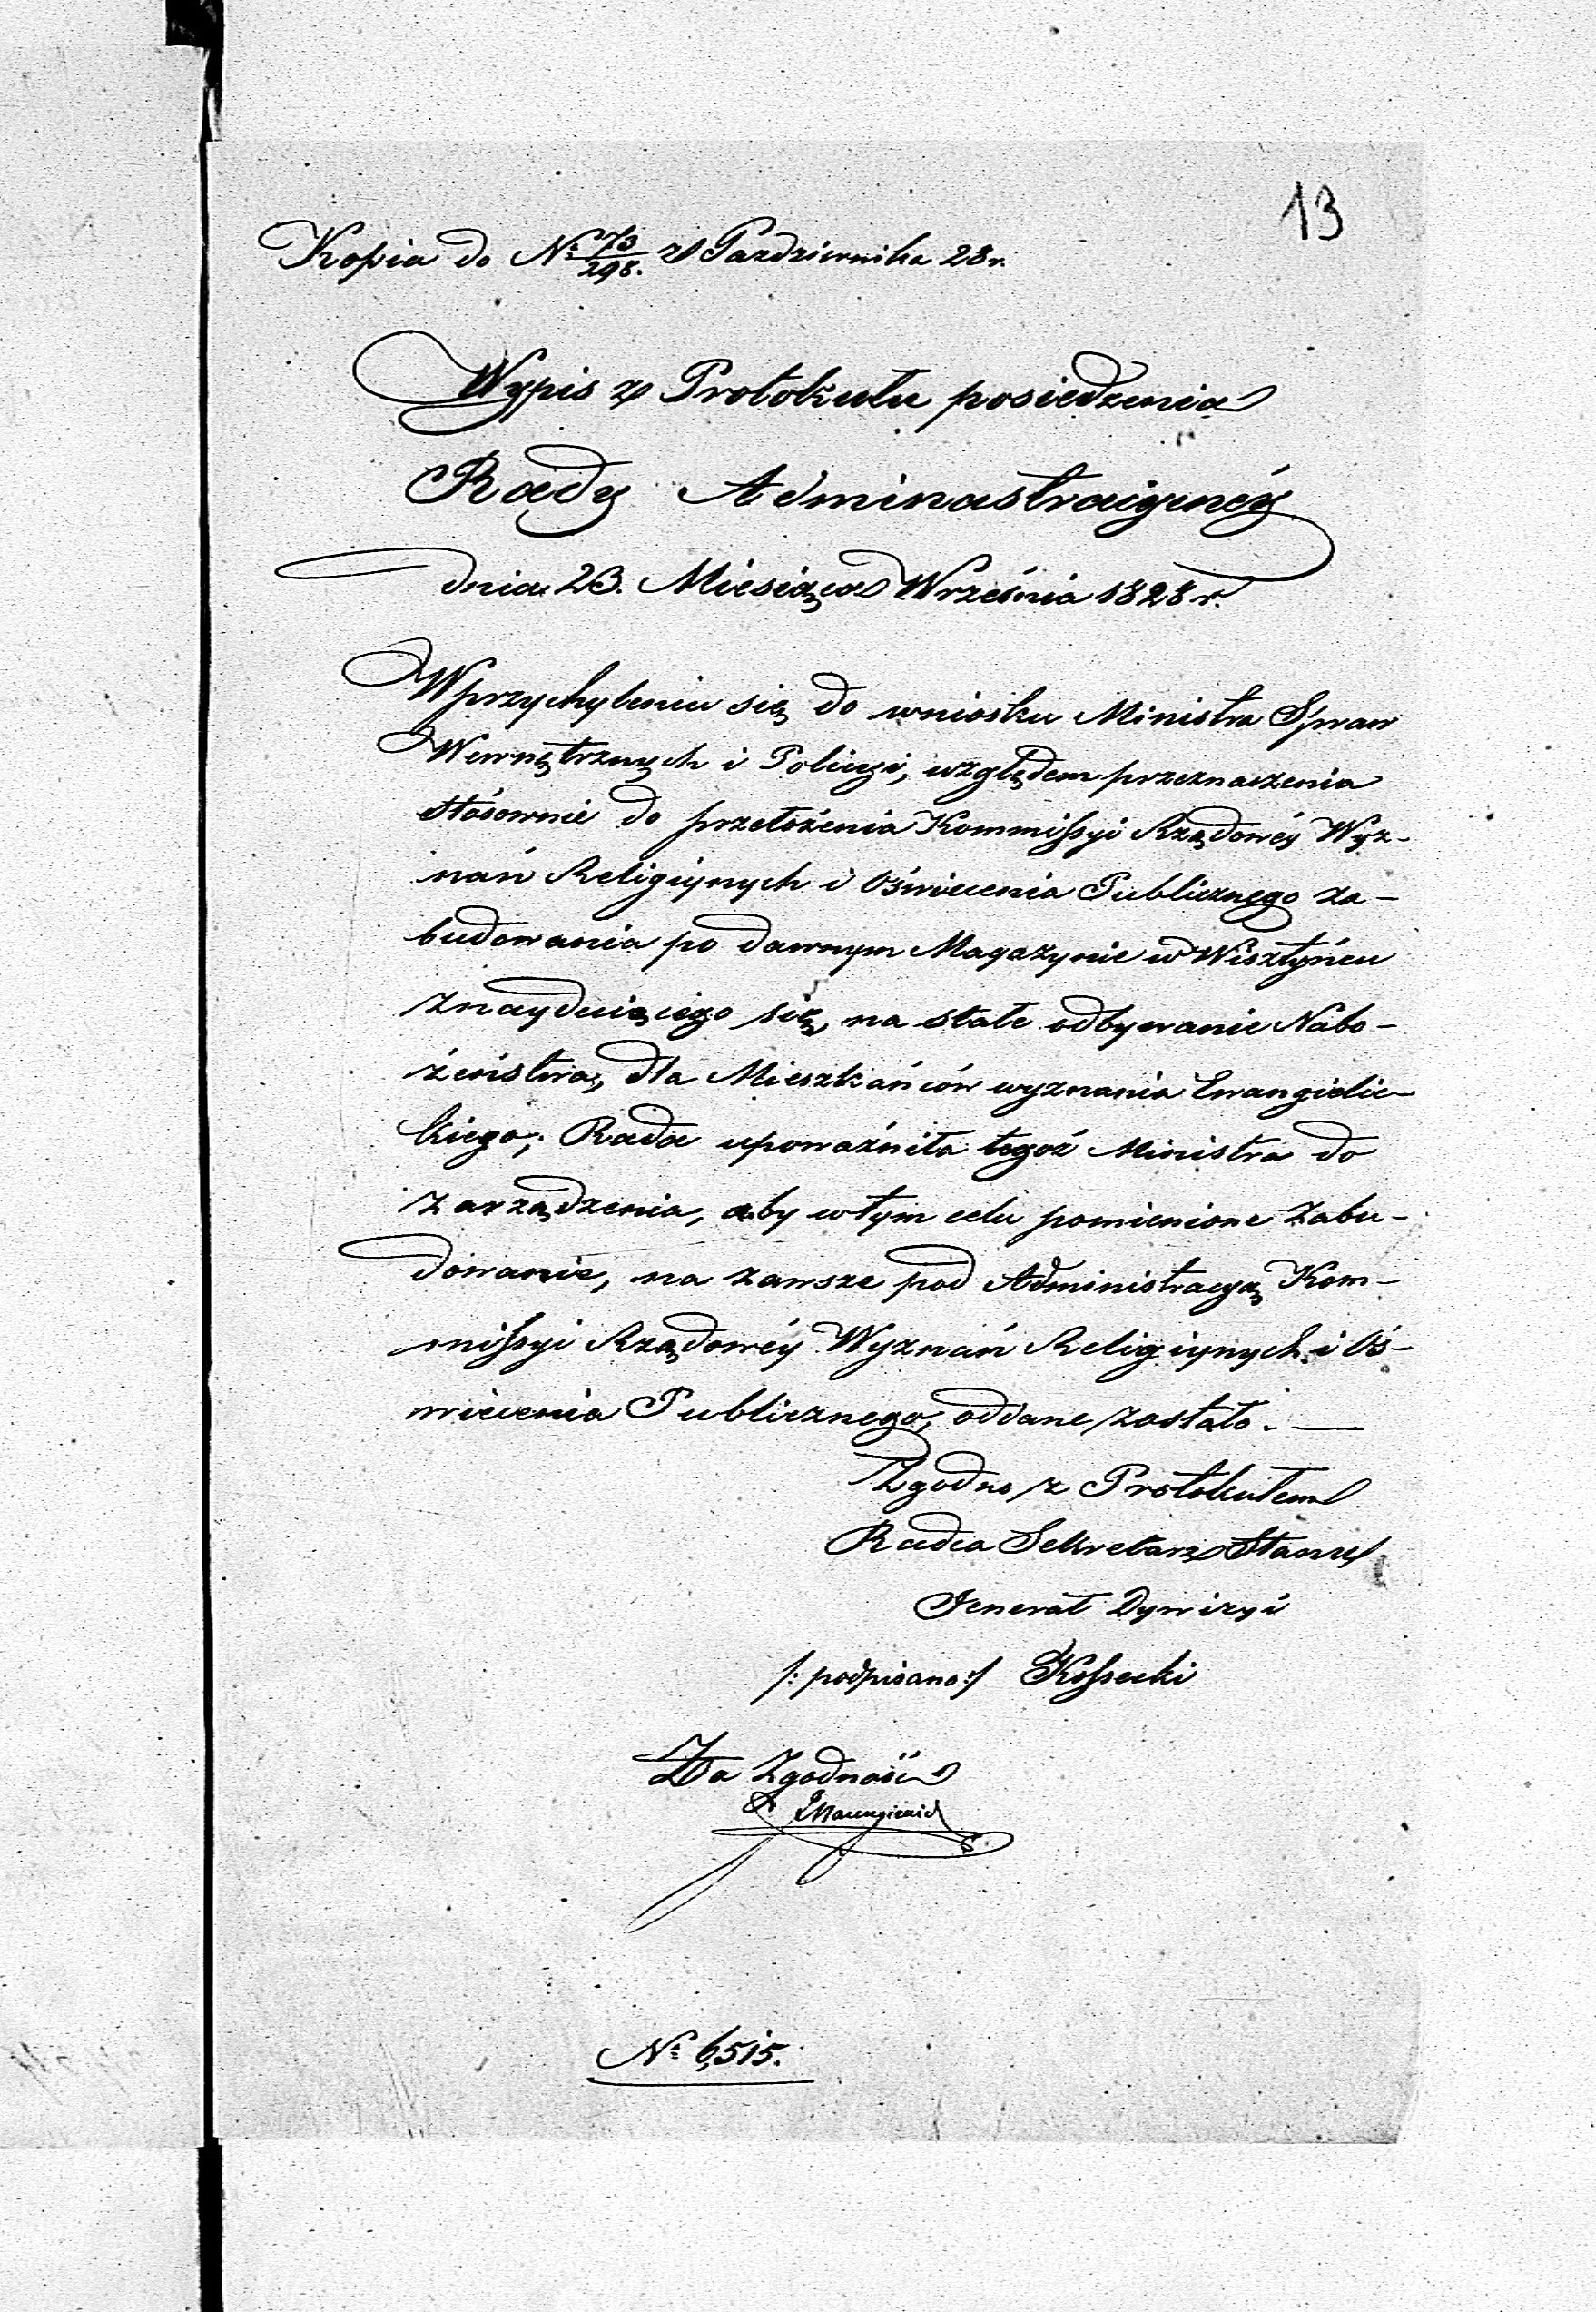 13
Kopia do Nº 73/298. z Pazdziernika 28 r.
Wypis z Protokułu posiedzenia
Rady Administracyinéy
dnia 23. Miesiąca Września 1828 r.
W przychyleniu się do wniosku Ministra Spraw
Wewnętrznych i Policyi, względem przeznaczenia
stósownie do przełożenia Kommissyi Rządowéy Wyz-
nań Religiynych i Oświecenia Publicznego za-
budowania po dawnym Magazynie w Wisztyńcu
znayduiącego się, na stałe odbywanie Nabo-
żeństwa, dla Mieszkańców wyznania Ewangielic-
kiego; Rada upoważniła tegoż Ministra do
zarządzenia, aby w tym celu pomienione Zabu-
dowanie, na zawsze pod Administracyą Kom-
missyi Rządowéy Wyznań Religiynych i Oś-
wiecenia Publicznego, oddane zostało. —
Zgodno z Protokułem
Radca Sekretarz Stanu
Jenerał Dywizyi
/: podpisano :/ Kossecki
Za Zgodność
Nº 6,515.